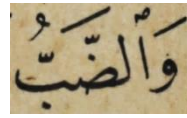 وَٱلضَّبُّ